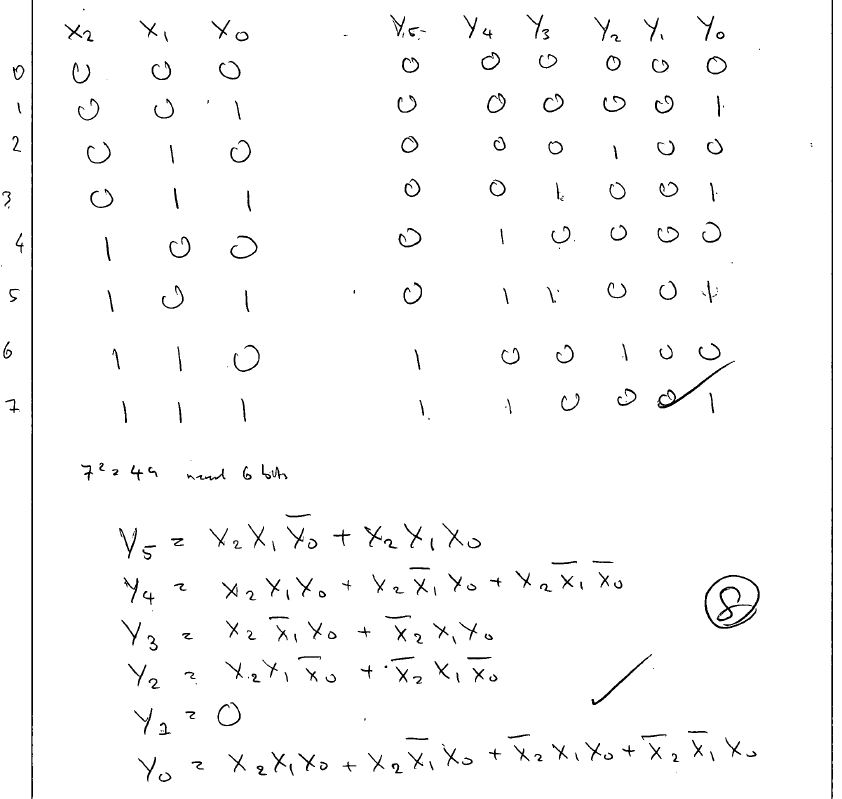 X₂ X₁ X₀ Y₅ Y₄ Y₃ Y₂ Y₁ Y₀
0 0 0 0 0 0 0 0 0 0
1 0 0 1 0 0 0 0 0 1
2 0 1 0 0 0 0 1 0 0
3 0 1 1 0 0 1 0 0 1
4 1 0 0 0 1 0 0 0 0
5 1 0 1 0 1 1 0 0 1
6 1 1 0 1 0 0 1 0 0
7 1 1 1 1 1 0 0 0 1
7² = 49 need 6 bits
Y₅ = X₂X₁X̅₀ + X₂X₁X₀
Y₄ = X₂X₁X₀ + X₂X̅₁X₀ + X₂X̅₁X̅₀
Y₃ = X₂X̅₁X₀ + X̅₂X₁X₀
8
Y₂ = X₂X₁X̅₀ + X̅₂X₁X̅₀
Y₁ = 0
Y₀ = X₂X₁X₀ + X₂X̅₁X₀ + X̅₂X₁X₀ + X̅₂X̅₁X₀